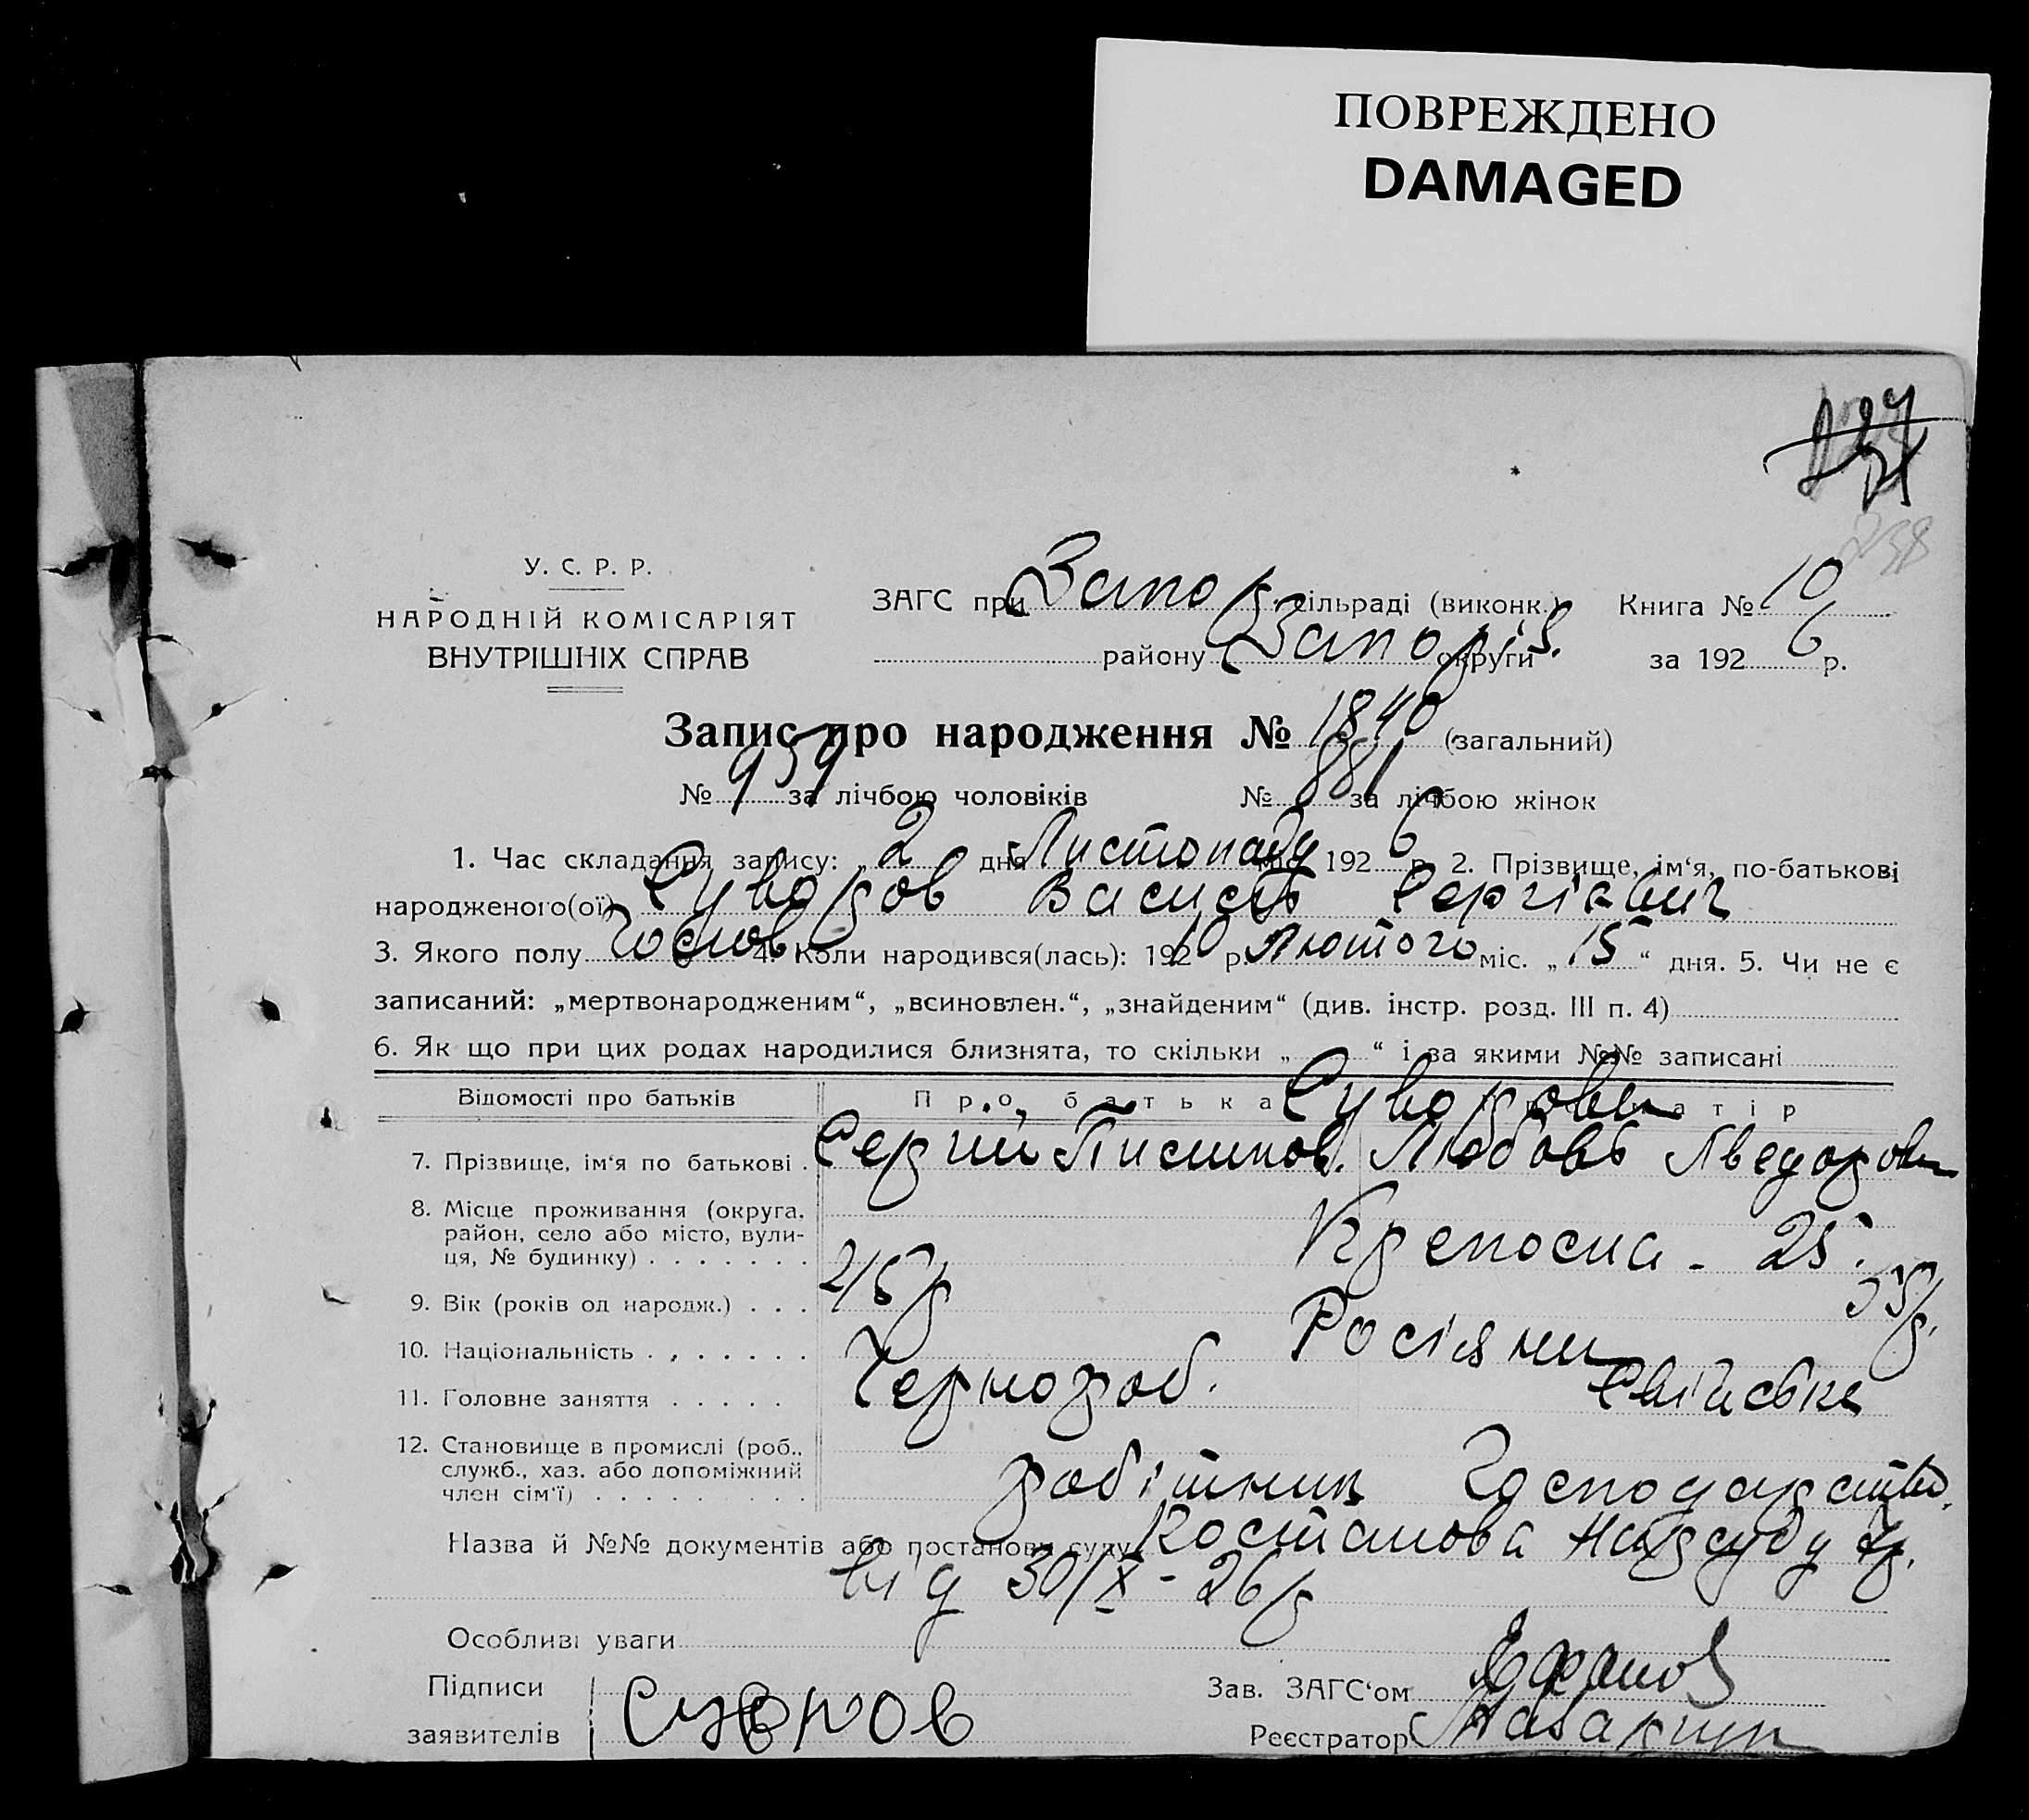 ПОВРЕЖДЕНО
DAMAGED
238
У. С. Р. Р.
НАРОДНІЙ КОМІСАРІЯТ
ВНУТРІШНІХ СПРАВ
ЗАГС при Запор. сільраді (виконк.) Книга № 10
району Запоріз. округи за 1926 р.
Запис про народження № 1840 (загальний)
№ 959 за лічбою чоловіків № 881 за лічбою жінок
1. Час складання запису: „2 дня Листопаду 1926 р. 2. Прізвище, ім‘я, по-батькові
народженого(ої) Суворов Василь Сергієвич
3. Якого полу Чолов 4. Коли народився(лась): 1910 р. Лютого міс. „15“ дня. 5. Чи не є
записаний: „мертвонародженим“, „всиновлен.“, „знайденим“ (див. інстр. розд. III п. 4)
6. Як що при цих родах народилися близнята, то скільки „ “ і за якими №№ записані
Відомості про батьків Про батька Про матір
Суворови
7. Прізвище, ім‘я по батькові Сергій Любовь
8. Місце проживання (округа, район, село або місто, вулиця, № будинку) Крепосна - 25.
9. Вік (років од народж.)
10. Національність Росіяни
11. Головне заняття Чернороб. Свійське
12. Становище в промислі (роб., служб., хаз. або допоміжний член сім‘ї) робітник Господарство.
Назва й №№ документів або постанови суду Постанова Нарсуду
від 30/X - 26 р
Особливі уваги
Підписи заявителів Суворов
Зав. ЗАГС‘ом
Реєстратор